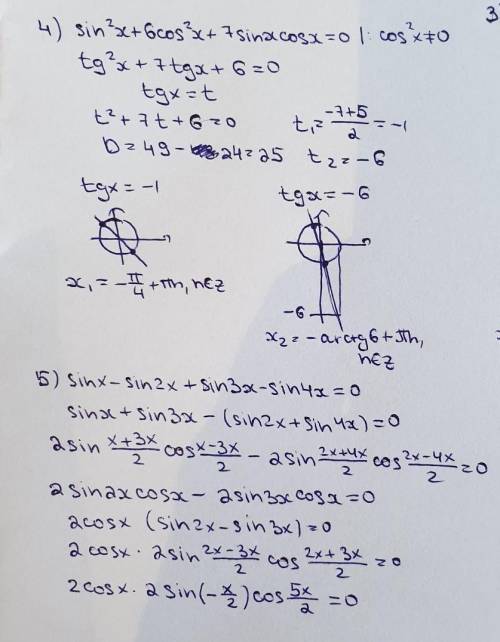 3
4) sin²x+6cos²x+7sinxcosx=0 |: cos²x≠0
tg²x+7tgx+6=0
tgx=t
t²+7t+6=0 t₁=(-7+5)/2=-1
D=49-24=25 t₂=-6
tgx=-1 tgx=-6
-6
x₁=-π/4+πn, n∈z
x₂=-arctg6+πn,
n∈z
5) sinx-sin2x+sin3x-sin4x=0
sinx+sin3x-(sin2x+sin4x)=0
2sin (x+3x)/2 cos (x-3x)/2 - 2sin (2x+4x)/2 cos (2x-4x)/2 =0
2sin2xcosx-2sin3xcosx=0
2cosx (sin2x-sin3x)=0
2cosx·2sin (2x-3x)/2 cos (2x+3x)/2 =0
2cosx·2sin(-x/2)cos 5x/2 =0